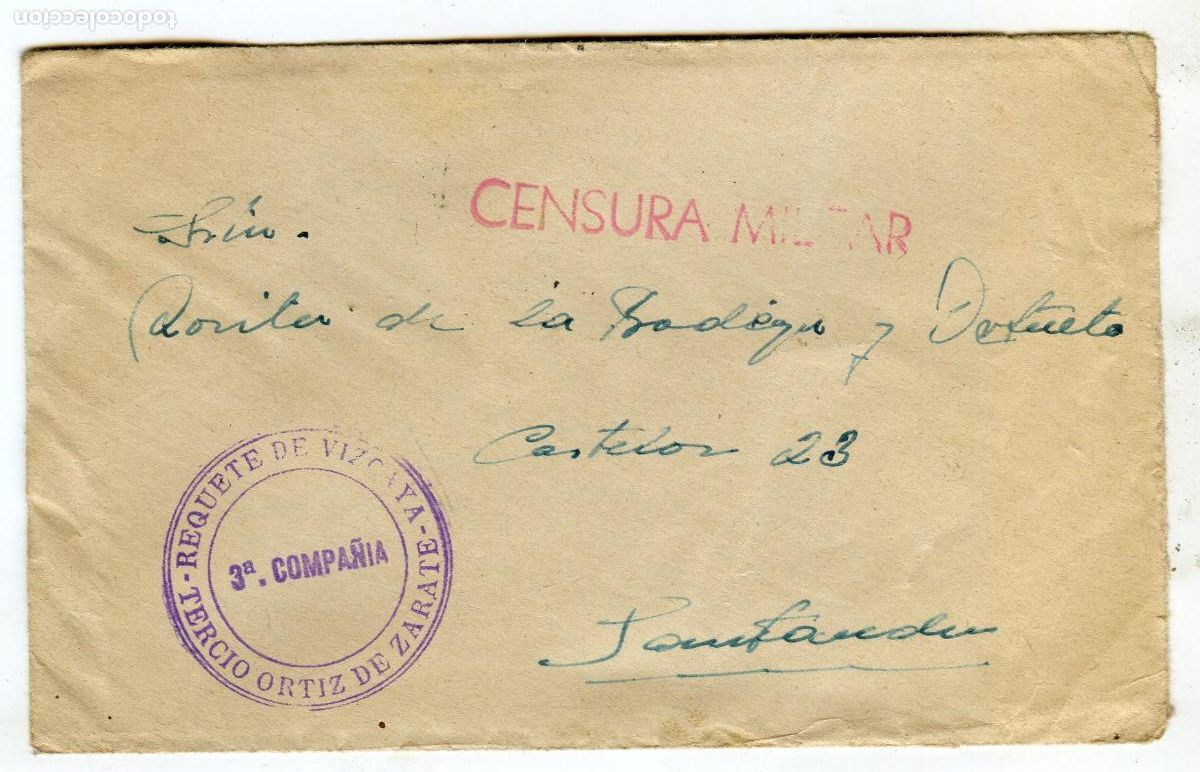 todocoleccion
CENSURA MILITAR
Srta.
Rosita de la Bodega y
Castelar 23
Santander
REQUETE DE VIZCAYA - TERCIO ORTIZ DE ZARATE -
3ª. COMPAÑIA